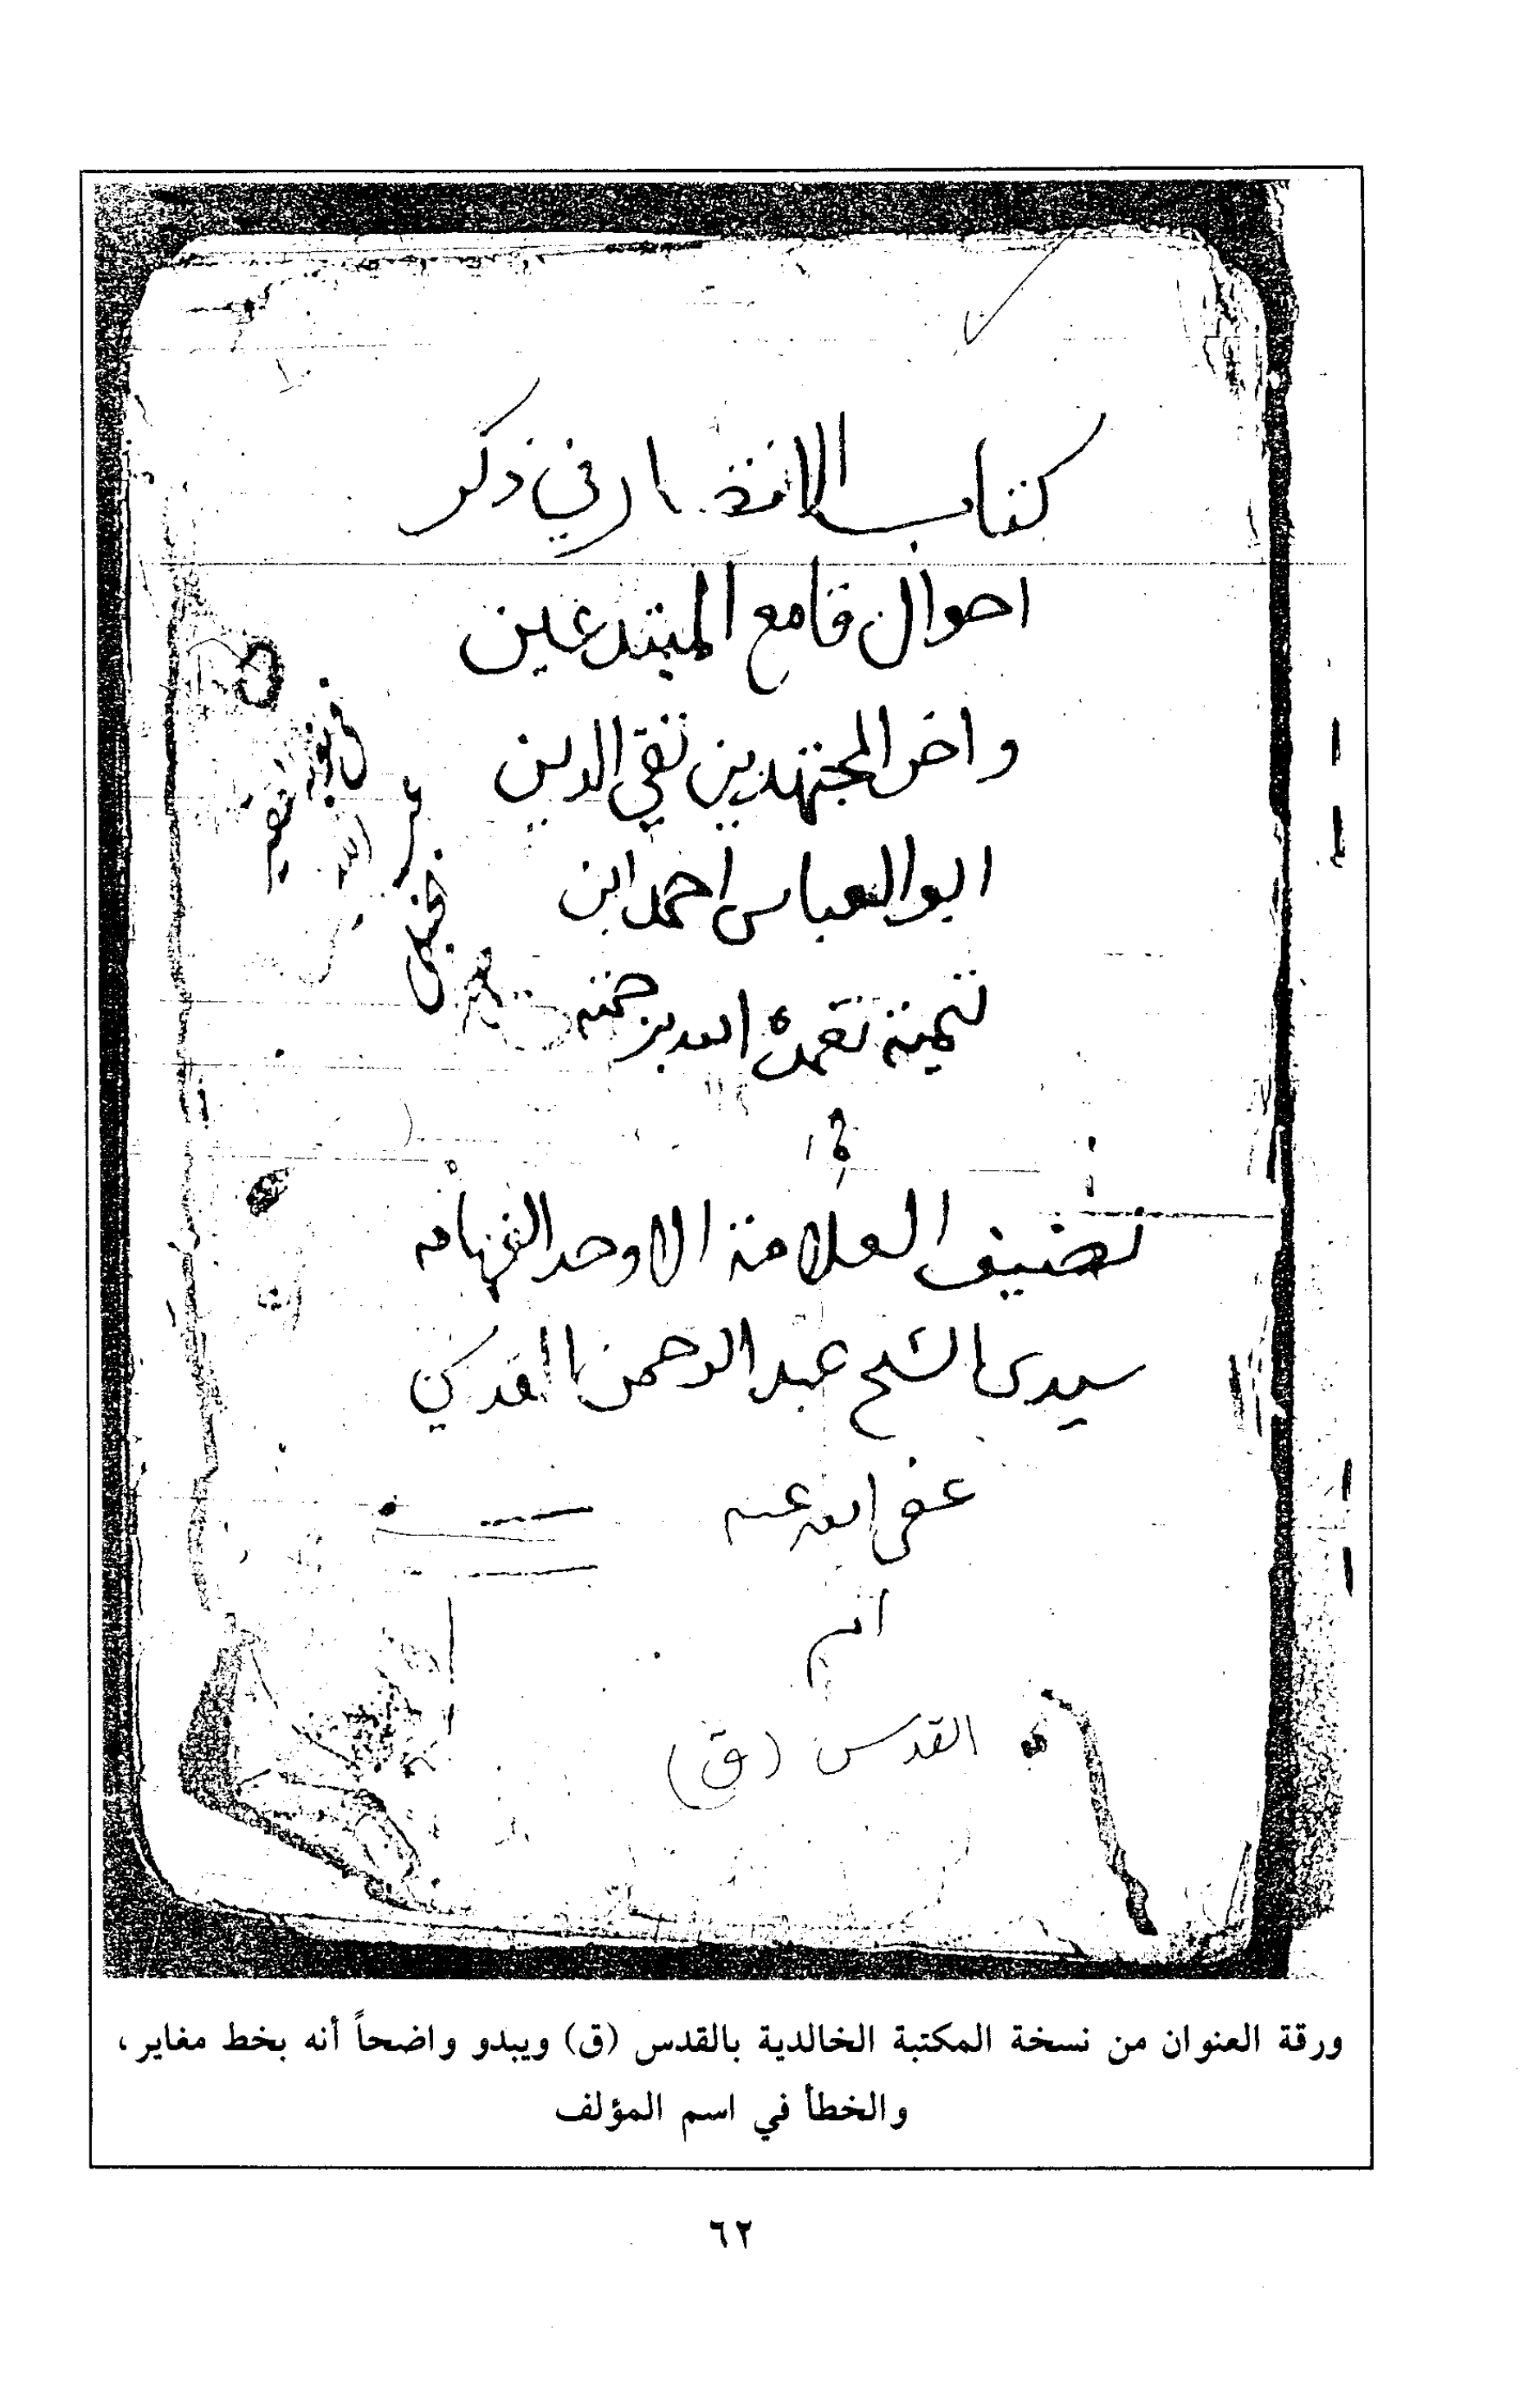 كتاب الانتصار في ذكر
احوال قامع المبتدعين
واخر المجتهدين تقي الدين
ابو العباس احمد ابن
تيمية تغمده الله برحمته
تصنيف العلامة الاوحد الفهامه
سيدى الشيخ عبد الرحمن المقدسي
عفى الله عنه
القدس (ق)
ورقة العنوان من نسخة المكتبة الخالدية بالقدس (ق) ويبدو واضحاً أنه بخط مغاير،
والخطأ في اسم المؤلف
٦٢